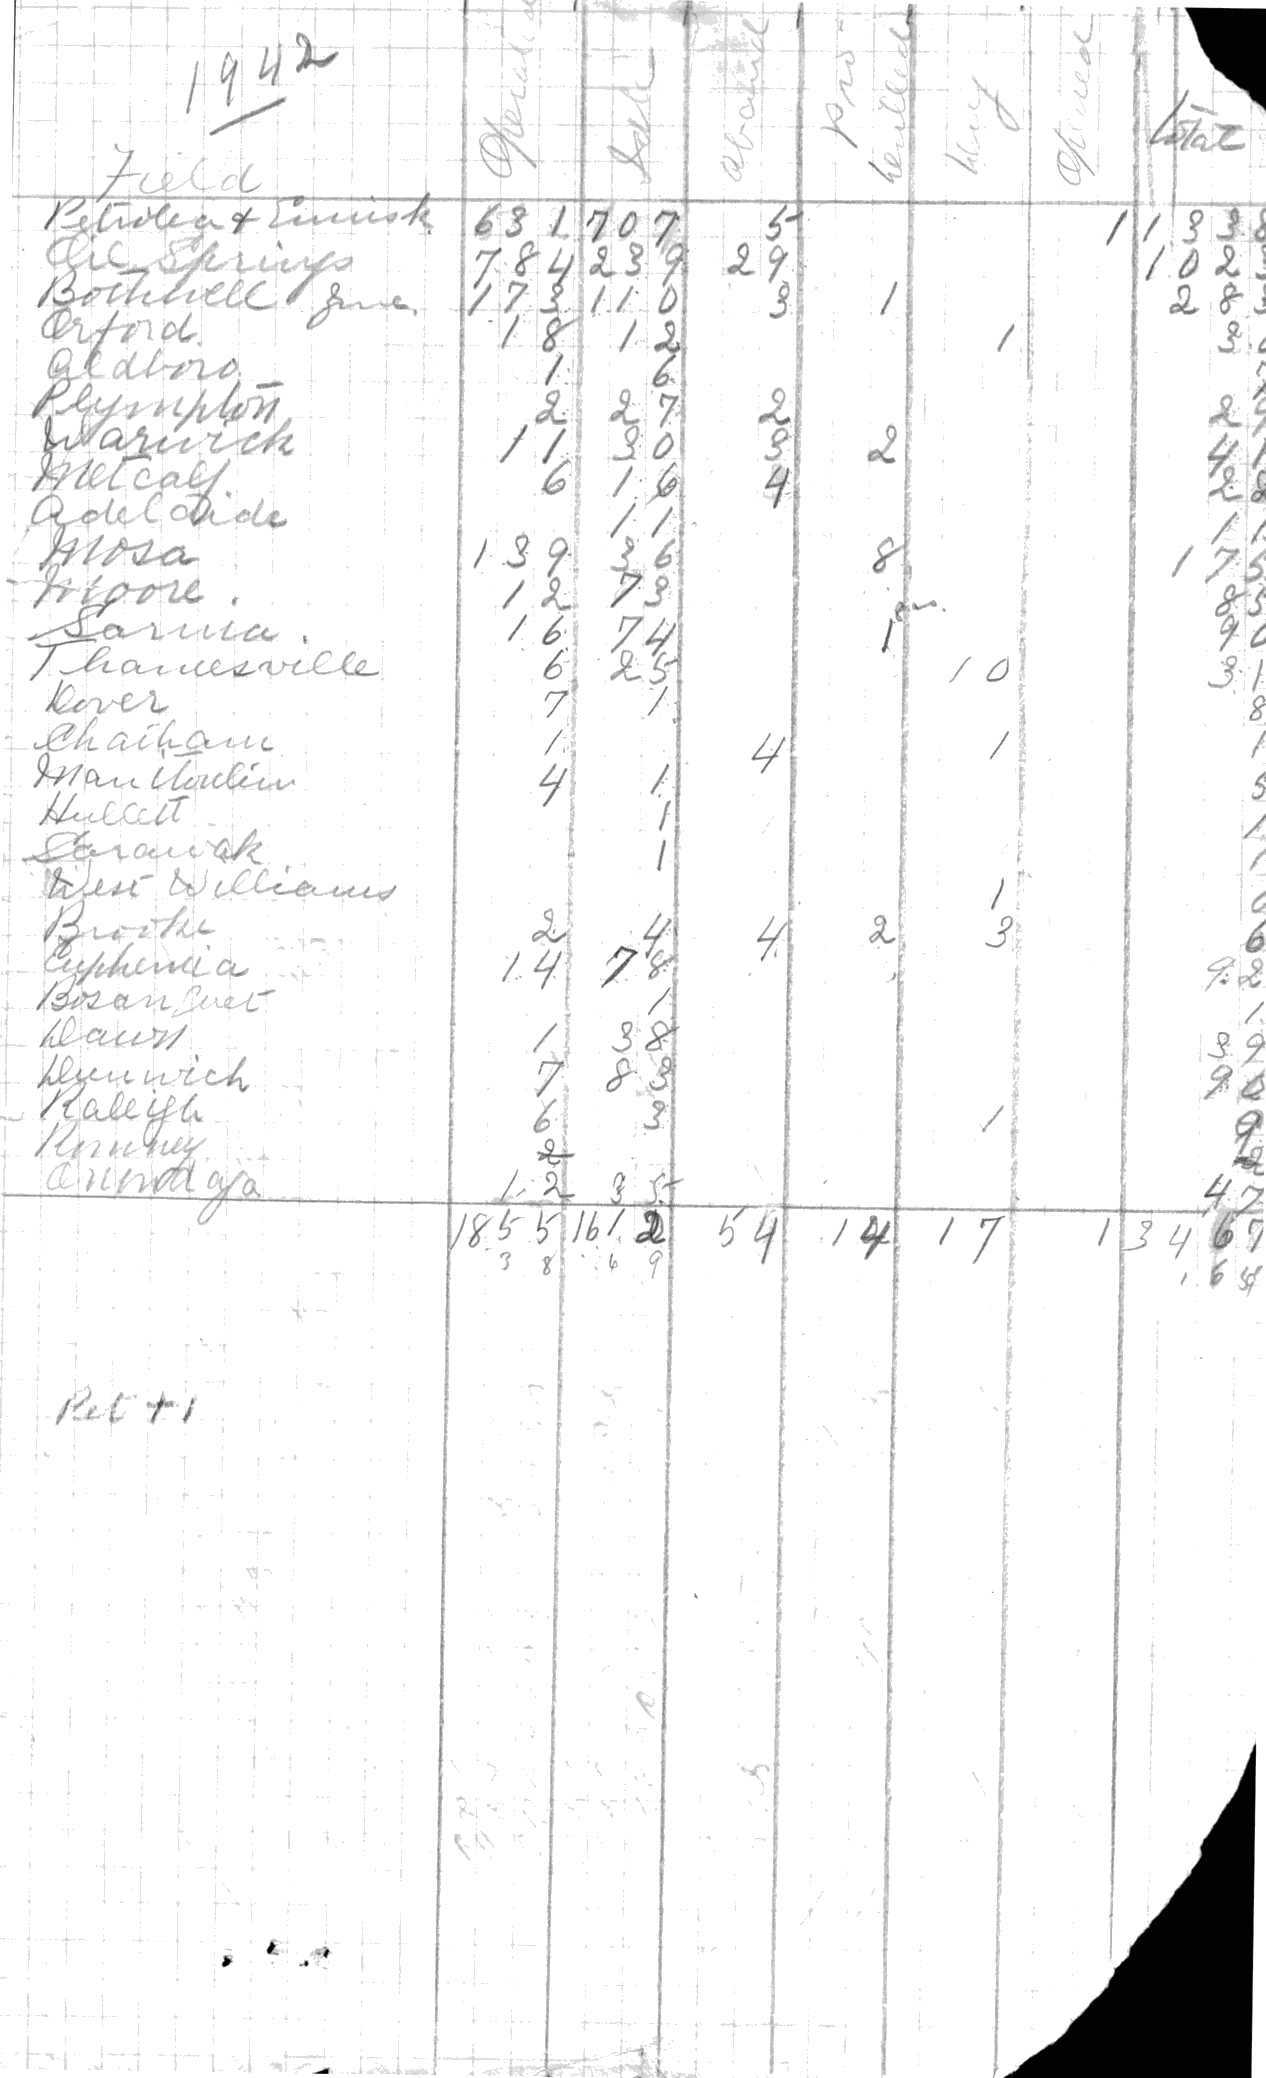 1942
Field Operat Idle Aband Pro Drilled Dry Opened Total
Petrolea & Ennisk. 631 707 5 1 1338
Oil Springs 784 239 29 1023
Bothwell Zone. 173 110 3 1 283
Orford. 18 12 1 30
Aldboro. 1 6 7
Plympton 2 27 2 29
Warwick 11 30 3 2 41
Metcalf. 6 16 4 22
Adelaide 11 11
Mosa 139 36 8 175
Moore. 12 73 85
Sarnia. 16 74 1 90
Thamesville 6 25 10 31
Dover 7 1 8
Chatham 1 4 1 1
Manitoulin 4 1 5
Hullett 1 1
Sarawak 1 1
West Williams 1 0
Brooke 2 4 4 2 3 6
Euphemia 14 78 92
Bosanquet 1 1
Dawn 1 38 39
Dunwich 7 83 90
Raleigh 6 3 1 9
Romney 2 2
Onondaga 12 35 47
1855 1612 54 14 17 1 3467
3 8 6 9 1 6
Pet + 1